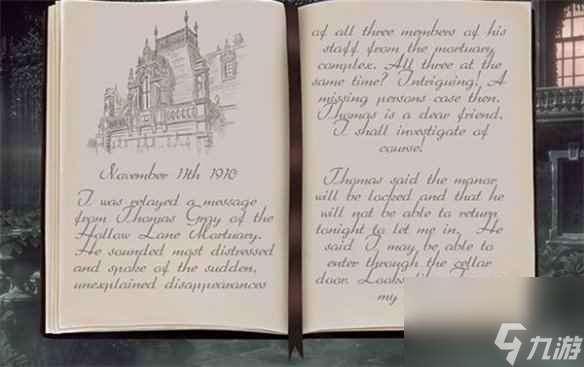 November 11th 1910
I was relayed a message
from Thomas Gray of the
Hollow Lane Mortuary.
He sounded most distressed
and spoke of the sudden,
unexplained disappearances
of all three members of his
staff from the mortuary
complex. All three at the
same time? Intriguing! A
missing persons case then.
Thomas is a dear friend.
I shall investigate of
course!
Thomas said the manor
will be locked and that he
will not be able to return
tonight to let me in. He
said I may be able to
enter through the cellar
door.
my
九游